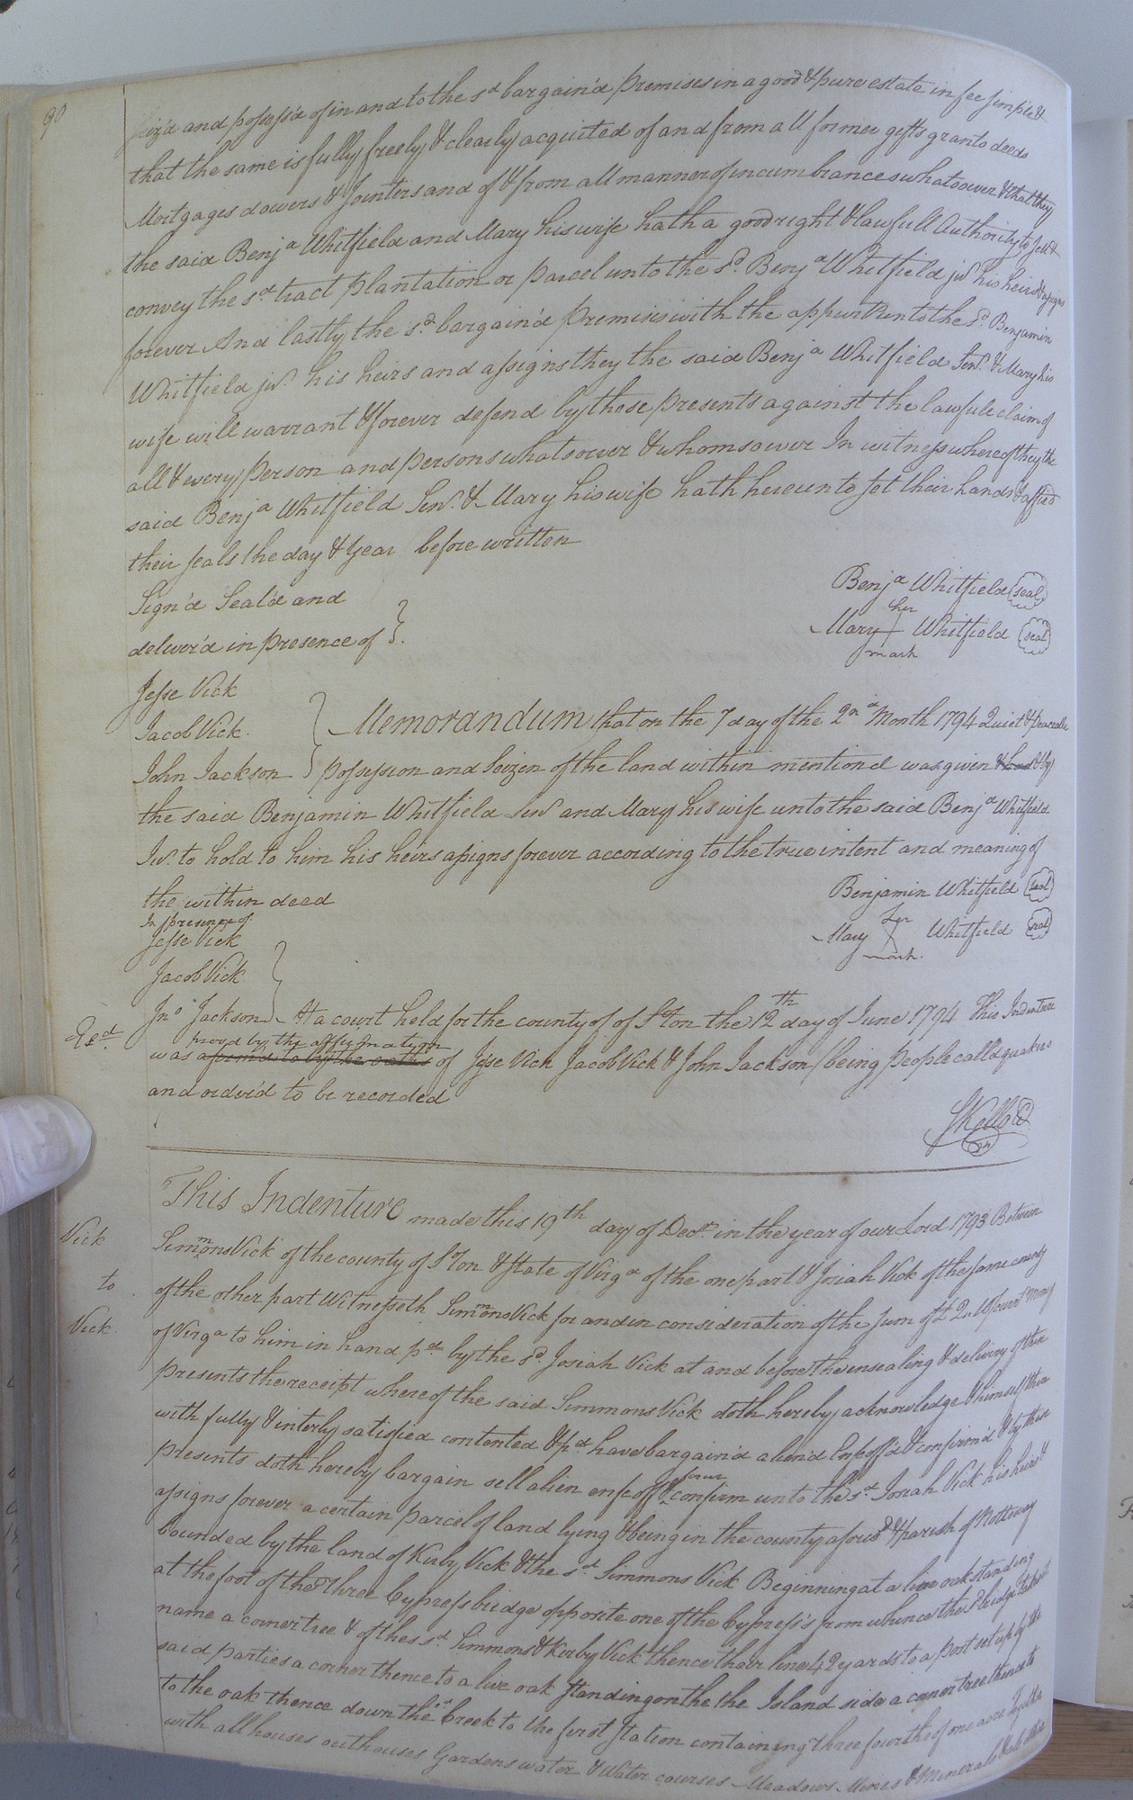 90
seiz'd and possess'd of in and to the sd bargain'd premises in a good & pure estate in fee simple &
that the same is fully freely & clearly acquited of and from all former gifts grants deeds
Mortgages dowers & Jointers and of & from all manner of incumbrances whatsoever & that they
the said Benja Whitfield and Mary his wife hath a good right & lawfull Authority to sell &
convey the sd tract plantation or parcel unto the sd Benja Whitfield jur his heirs & assigns
forever And lastly the sd bargain'd premises with the appurts unto the sd Benjamin
Whitfield jur his heirs and assigns they the said Benja Whitfield Senr & Mary his
wife will warrant & forever defend by these presents against the lawfule claim of
all & every person and persons whatsoever & whomsoever In witness whereof they the
said Benja Whitfield Senr & Mary his wife hath hereunto set their hands & affix'd
their seals the day & year before written
Sign'd Seal'd and
deliver'd in presence of
Benja Whitfield seal
Mary her mark Whitfield seal
Jesse Vick
Jacob Vick
John Jackson
Memorandum that on the 7 day of the 2nd Month 1794 Quiet & peaceable
possession and Seizen of the land within mentioned was given & had & by
the said Benjamin Whitfield Senr and Mary his wife unto the said Benja Whitfield
Jur to hold to him his heirs assigns forever according to the true intent and meaning of
the within dead
Benjamin Whitfield seal
In presence of
Jesse Vick
Mary her mark Whitfield seal
Jacob Vick
Jno Jackson
At a court held for the county of of S'ton the 12th day of June 1794 This Indenture
Red
was provd by the affirmation of Jesse Vick Jacob Vick & John Jackson (being people call'd quakers
and order'd to be recorded
S Kello Cl
Vick to Vick
This Indenture made this 19th day of Decr in the year of our Lord 1793 Between
Simmons Vick of the county of S'ton & State of Virga of the one part & Josiah Vick of the same county
of the other part Witnesseth Simmons Vick for and in consideration of the Sum of £ 2.10 Current Money
of Virga to him in hand pd by the sd Josiah Vick at and before the ensealing & delivery of these
presents the receipt whereof the said Simmons Vick doth hereby acknowledge & himself there
with fully & interly satisfied contented & pd have bargain'd alien'd Enfeoff'd & confirm'd & by these
presents doth hereby bargain sell alien enfeoff & confirm unto the sd Josiah Vick his heirs &
assigns forever a certain parcel of land lying & being in the county aforesd & parish of Nottoway
bounded by the land of Kirby Vick & the sd Simmons Vick Beginning at a live oak standing
at the foot of the Three Cypress bridge opposite one of the Cypress's from whence the sd bridge takes its
name a corner tree & of the sd Simmons & Kerby Vick thence their line 42 yards to a post set up by the
said parties a corner thence to a live oak standing on the the Island side a corner tree thence to
to the oak thence down the Creek to the first Station containing three fourths of one acre
with all houses outhouses Gardens water & Water courses Meadows Mines & Minerals